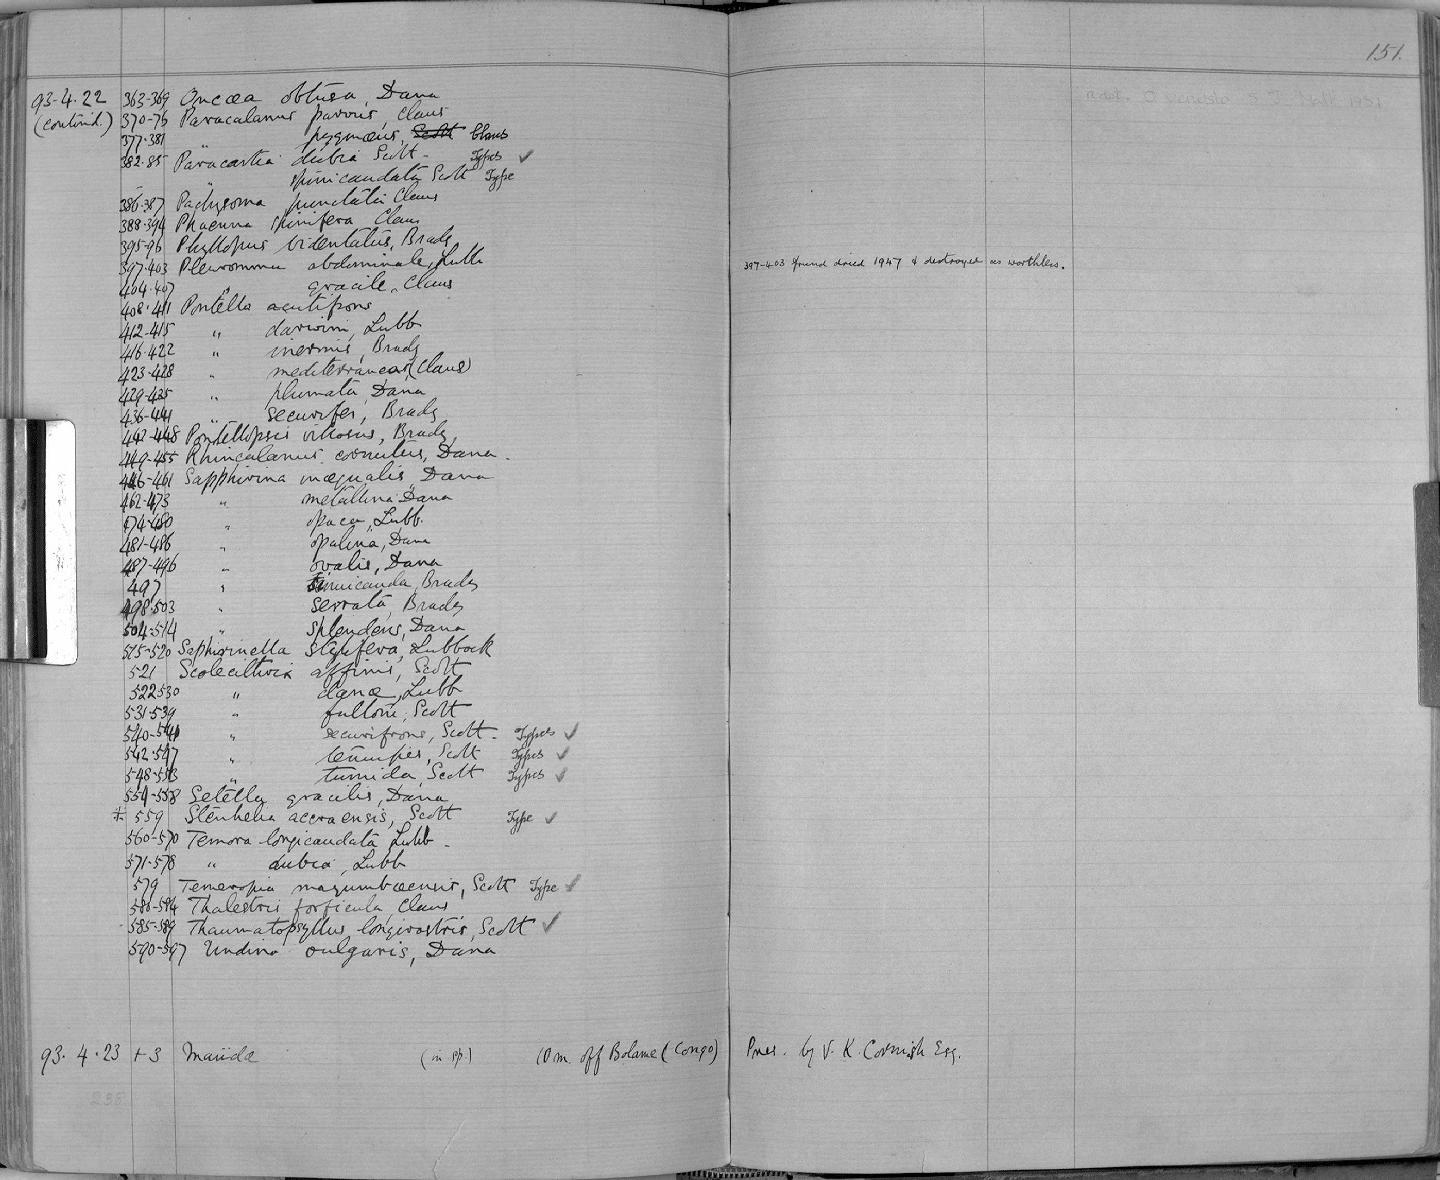 151.
93.4.22 363-369 Oncœa obtusa, Dana
(contind.) 370-76 Paracalanus parvus, Claus
377-381 pygmæus, Scott Claus
382-85 Paracartia dubia Scott - Types ✓
- " spinicaudata Scott Type
386-387 Pachysoma punctata Claus
388-394 Phaenna spinifera Claus
395-96 Phyllopus bidentatus, Brady
397-403 Pleuromma abdominale, Lubb 397-403 found dried 1947 & destroyed as worthless.
404-407 " gracile, Claus
408-411 Pontella acutifrons
412-415 " darwini, Lubb
416-422 " inermis, Brady
423-428 " mediterranea (Claus)
429-435 " plumata, Dana
436-441 " securifer, Brady
442-448 Pontellopsis villosus, Brady
449-455 Rhincalanus cornutus, Dana -
456-461 Sapphirina inæqualis, Dana
462-473 " metallina Dana
474-480 " opaca, Lubb.
481-486 " opalina, Dana
487-496 " ovalis, Dana
497 " sinuicauda, Brady
498-503 " serrata, Brady
504-514 " splendens, Dana
515-520 Saphirinella stylifera, Lubbock
521 Scolecithrix affinis, Scott
522-530 " danæ, Lubb
531-539 " fultoni, Scott
540-541 " securifrons, Scott - Types ✓
542-547 " tenuipes, Scott Types ✓
548-553 " tumida, Scott Types ✓
554-558 Setella gracilis, Dana
* 559 Stenhelia accraensis, Scott Type ✓
560-570 Temora longicaudata Lubb -
571-578 " dubia, Lubb
579 Temoropia mayumbaensis, Scott Type ✓
580-584 Thalestris forficula, Claus
585-589 Thaumatopsyllus longirostris, Scott ✓
590-597 Undina vulgaris, Dana
93.4.23 + 3 Mauidæ (in sp.) 10 m. off Bolame (Congo) Pres. by V. K. Cornish Esq.
238